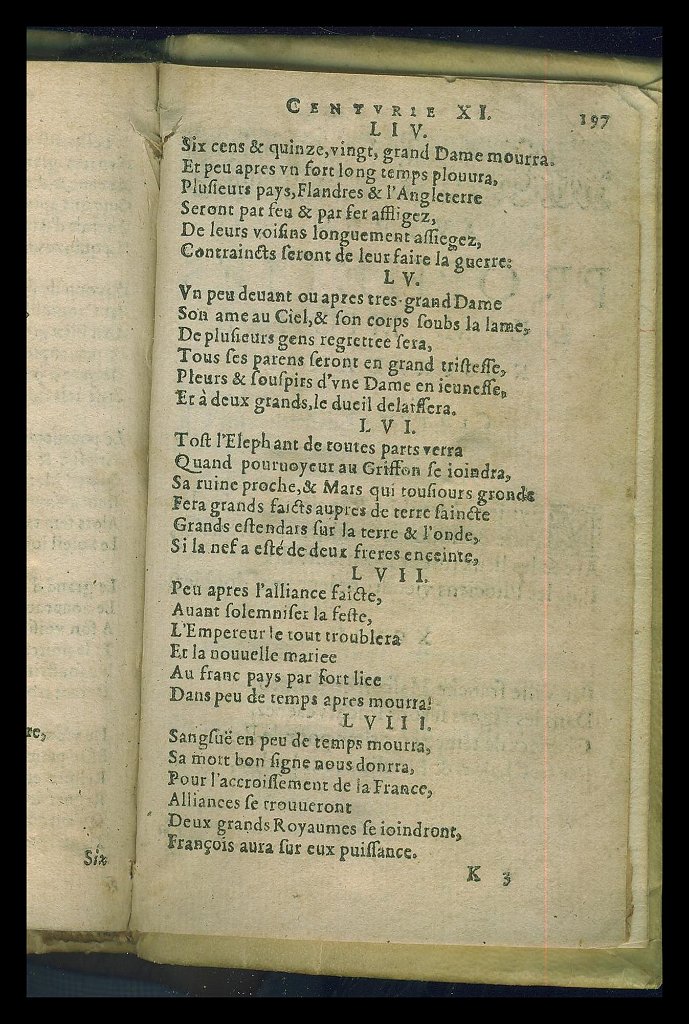 re,
Six
CENTVRIE XI. 197
LIV.
Six cens & quinze, vingt, grand Dame mourra.
Et peu apres vn fort long temps plouura,
Plusieurs pays, Flandres & l'Angleterre
Seront par feu & par fer affligez,
De leurs voisins longuement assiegez,
Contraincts seront de leur faire la guerre:
LV.
Vn peu deuant ou apres tres-grand Dame
Son ame au Ciel, & son corps soubs la lame,
De plusieurs gens regrettee sera,
Tous ses parens seront en grand tristesse,
Pleurs & souspirs d'vne Dame en ieunesse,
Et à deux grands, le dueil delaissera.
LVI.
Tost l'Elephant de toutes parts verra
Quand pouruoyeur au Griffon se ioindra,
Sa ruine proche, & Mars qui tousiours gronde
Fera grands faicts aupres de terre saincte
Grands estendars sur la terre & l'onde,
Si la nef a esté de deux freres enceinte,
LVII.
Peu apres l'alliance faicte,
Auant solemniser la feste,
L'Empereur le tout troublera
Et la nouuelle mariee
Au franc pays par fort liee
Dans peu de temps apres mourra.
LVIII.
Sangsuë en peu de temps mourra,
Sa mort bon signe nous donrra,
Pour l'accroissement de la France,
Alliances se trouueront
Deux grands Royaumes se ioindront,
François aura sur eux puissance.
K 3